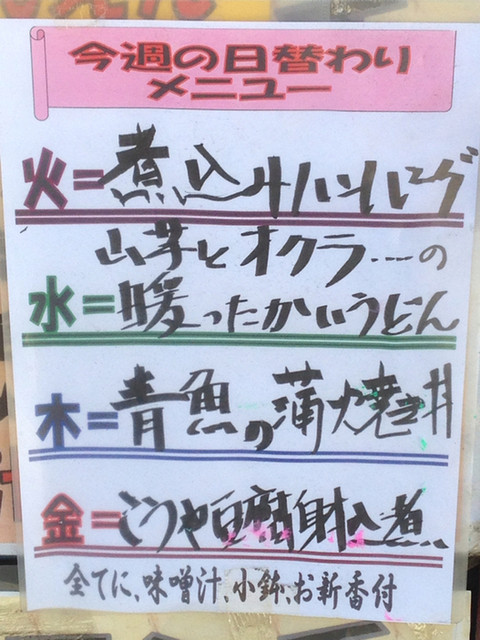 今週の日替わり
メニュー
火=煮込みハンバーグ
山芋とオクラ…の
水=暖ったかいうどん
木=青魚の蒲焼き丼
金=こうや豆腐射込煮
全てに、味噌汁、小鉢、お新香付